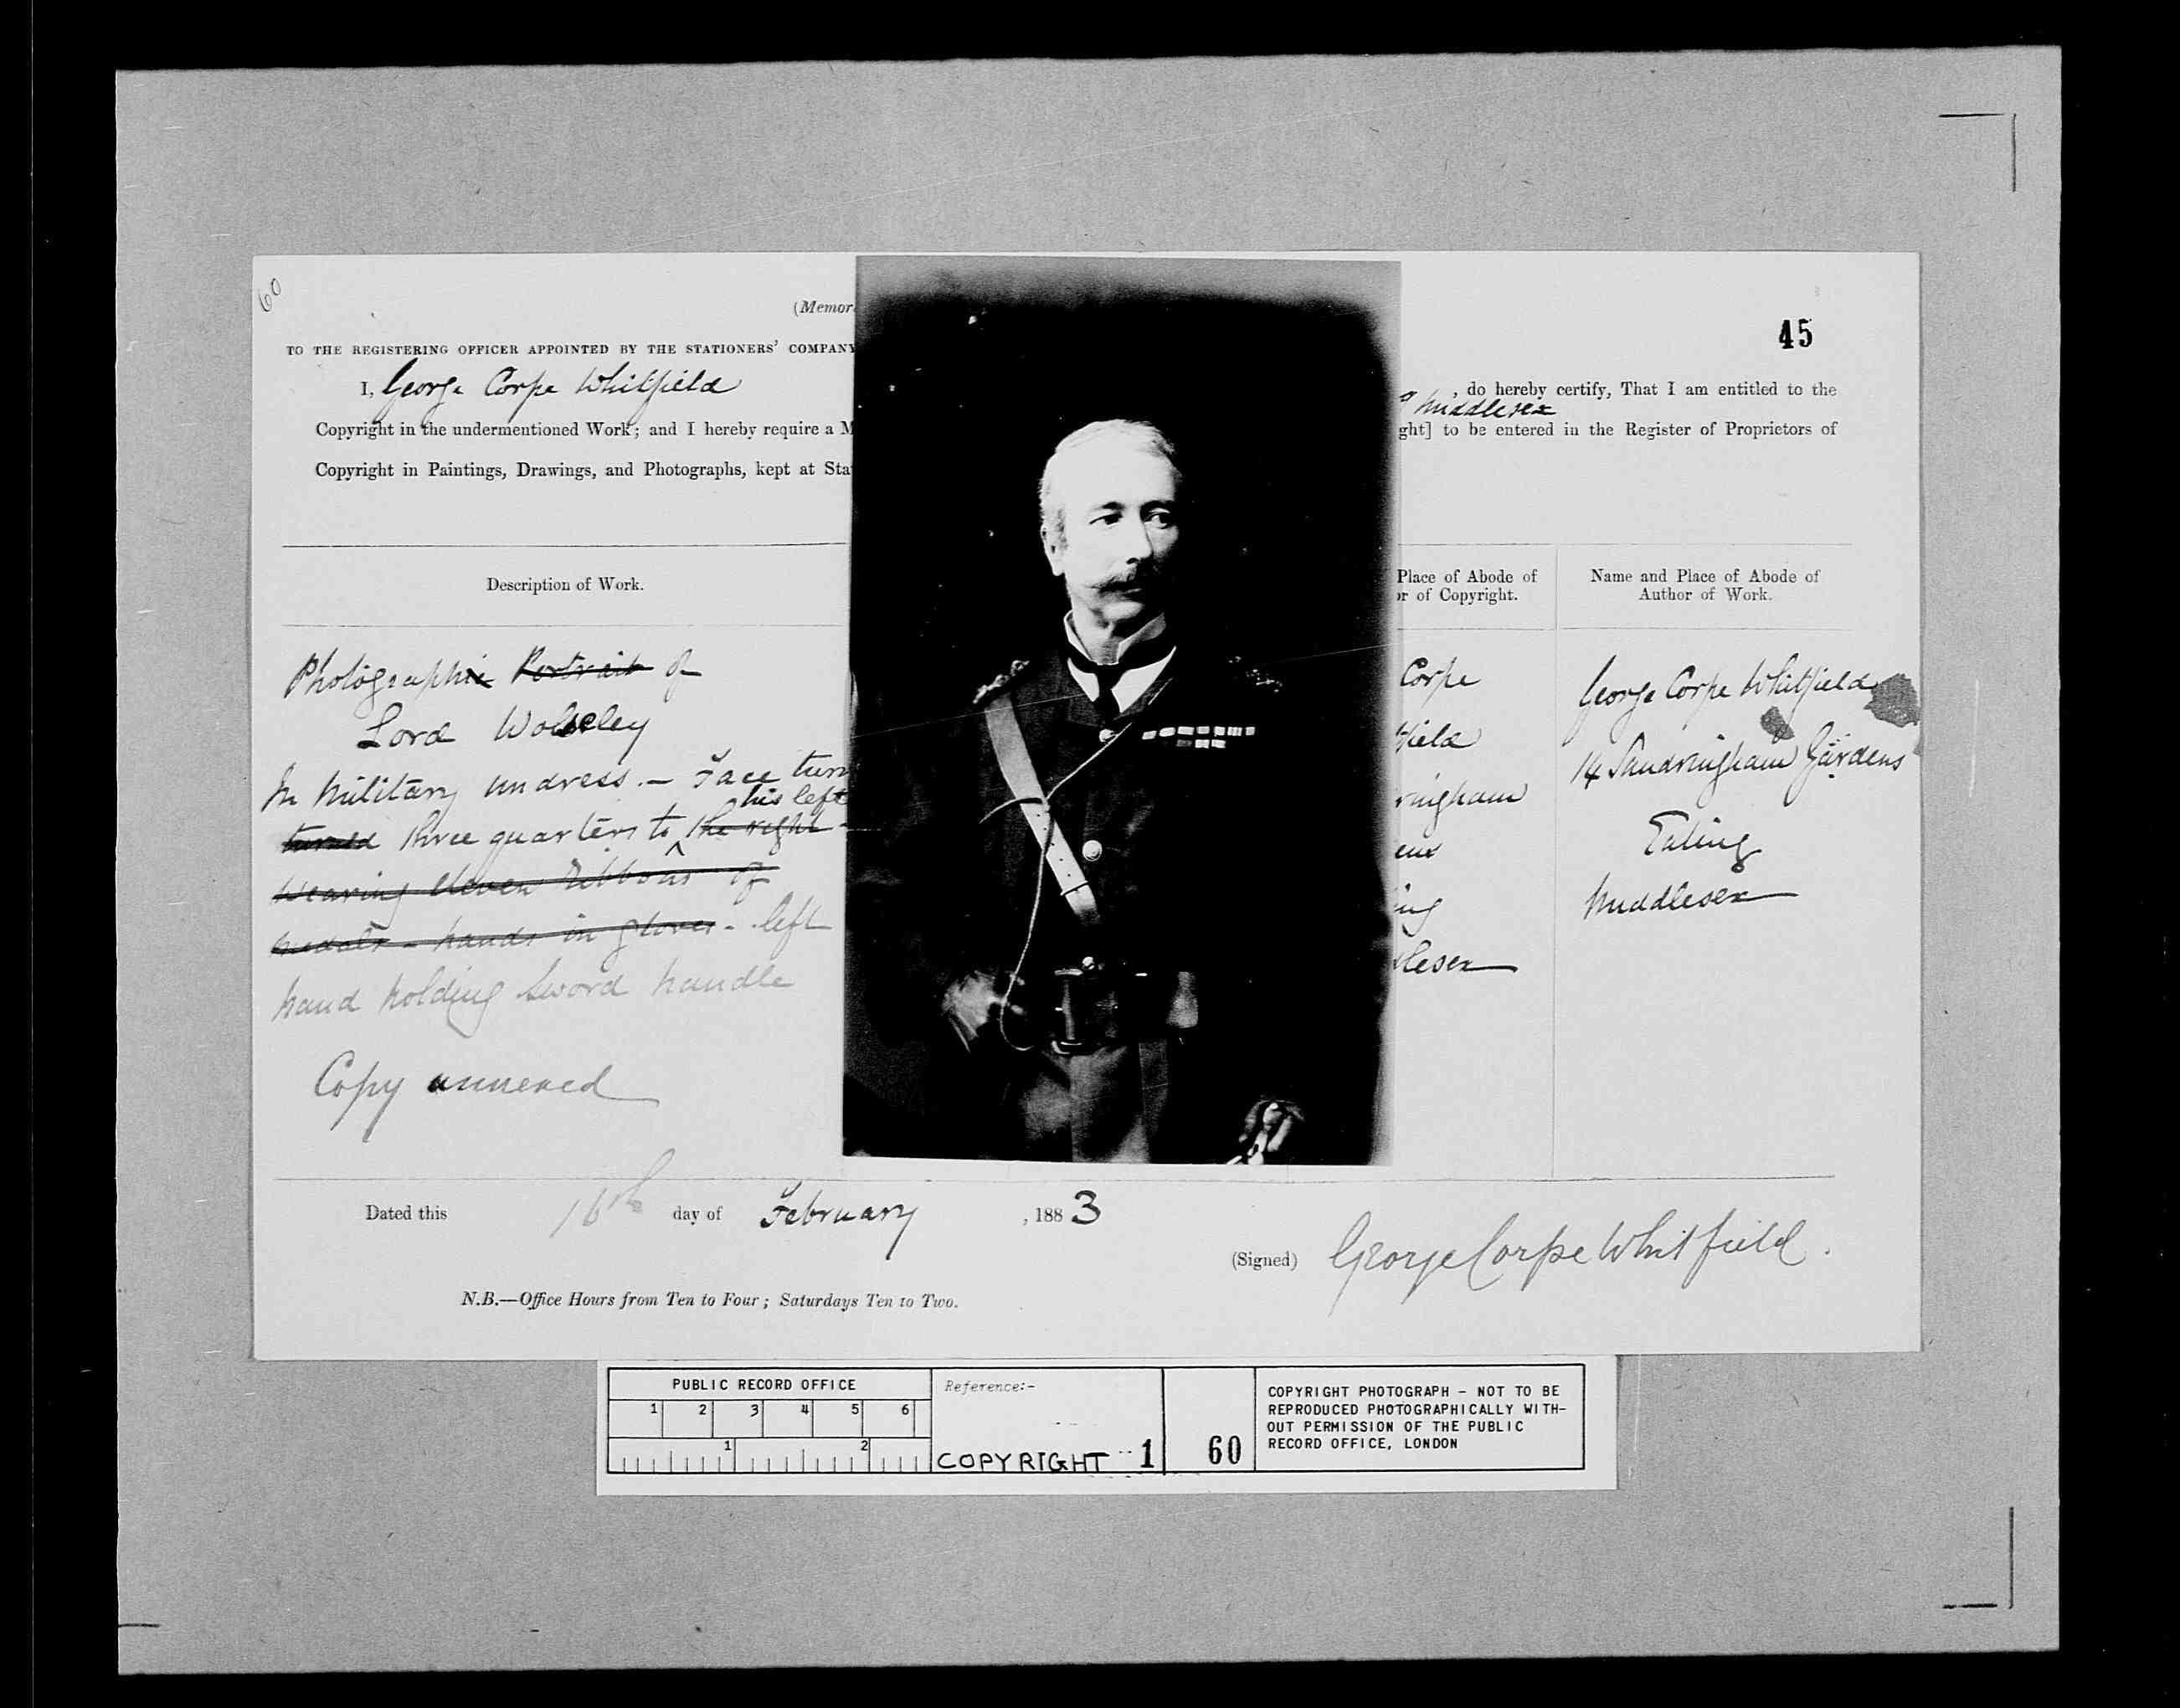 60
(Memor
45
TO THE REGISTERING OFFICER APPOINTED BY THE STATIONERS' COMPANY
I, George Corpe Whitfield
, do hereby certify, That I am entitled to the
Middlesex
Copyright in the undermentioned Work; and I hereby require a M
ght] to be entered in the Register of Proprietors of
Copyright in Paintings, Drawings, and Photographs, kept at Sta
Description of Work.
Photographic Portrait of
Lord Wolseley
In Military undress. – Face turn
his left
turned three quarters to the right –
wearing eleven ribbons of
medals – hands in gloves – left
hand holding sword handle
Copy annexed
Place of Abode of
or of Copyright.
Corpe
field
ringham
ens
ing
lesex
Name and Place of Abode of
Author of Work.
George Corpe Whitfield
14 Sandringham Gardens
Ealing
Middlesex
Dated this 16th day of February, 1883
(Signed) George Corpe Whitfield.
N.B.—Office Hours from Ten to Four; Saturdays Ten to Two.
PUBLIC RECORD OFFICE
1 2 3 4 5 6
1 2
Reference:-
COPYRIGHT 1
60
COPYRIGHT PHOTOGRAPH - NOT TO BE
REPRODUCED PHOTOGRAPHICALLY WITH-
OUT PERMISSION OF THE PUBLIC
RECORD OFFICE, LONDON